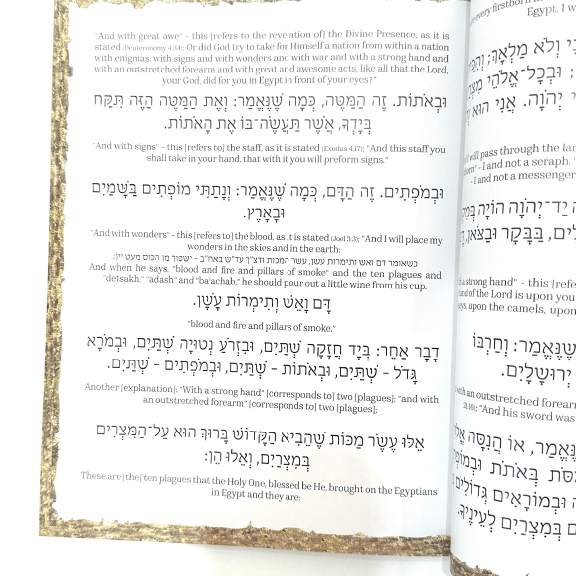 "And with great awe" - this [refers to the revelation of] the Divine Presence, as it is
stated (Deuteronomy 4:34); Or did God try to take for Himself a nation from within a nation
with enigmas, with signs and with wonders and with war and with a strong hand and
with an outstretched forearm and with great and awesome acts, like all that the Lord,
your God, did for you in Egypt in front of your eyes?"
וּבְאֹתוֹת. זֶה הַמַּטֶּה, כְּמָה שֶׁנֶּאֱמַר: וְאֶת הַמַּטֶּה הַזֶּה תִּקַּח
בְּיָדְךָ, אֲשֶׁר תַּעֲשֶׂה־בּוֹ אֶת הָאֹתוֹת.
"And with signs" - this [refers to] the staff, as it is stated (Exodus 4:17); "And this staff you
shall take in your hand, that with it you will preform signs."
וּבְמֹפְתִים. זֶה הַדָּם, כְּמָה שֶׁנֶּאֱמַר: וְנָתַתִּי מוֹפְתִים בַּשָּׁמַיִם
וּבָאָרֶץ.
"And with wonders" - this [refers to] the blood, as it is stated (Joel 3:3); "And I will place my
wonders in the skies and in the earth:
כשאומר דם ואש ותימרות עשן, עשר המכות ודצ"ך עד"ש באח"ב - ישפוך מן הכוס מעט יין:
And when he says, "blood and fire and pillars of smoke" and the ten plagues and
"detsakh," "adash" and "ba'achab," he should pour out a little wine from his cup.
דָּם וָאֵשׁ וְתִימְרוֹת עָשָׁן.
"blood and fire and pillars of smoke."
דָּבָר אַחֵר: בְּיָד חֲזָקָה שְׁתַּיִם, וּבִזְרֹעַ נְטוּיָה שְׁתַּיִם, וּבְמֹרָא
גָּדֹל - שְׁתַּיִם, וּבְאֹתוֹת - שְׁתַּיִם, וּבְמֹפְתִים - שְׁתַּיִם.
Another [explanation]: "With a strong hand" [corresponds to] two [plagues]; "and with
an outstretched forearm" [corresponds to] two [plagues];
אֵלּוּ עֶשֶׂר מַכּוֹת שֶׁהֵבִיא הַקָּדוֹשׁ בָּרוּךְ הוּא עַל־הַמִּצְרִים
בְּמִצְרַיִם, וְאֵלוּ הֵן:
These are [the] ten plagues that the Holy One, blessed be He, brought on the Egyptians
in Egypt and they are:
every firstborn
Egypt, I
וְלֹא מַלְאָךְ;
וּבְכָל־אֱלֹהֵי
יְהֹוָה. אֲנִי הוּא
will pass through the
- I and not a seraph.
- I and not a messenger
יַד־יְהוָה הוֹיָה
בַּבָּקָר וּבַצֹּאן,
a strong hand" - this [refers
of the Lord is upon you
upon the camels, upon
שֶׁנֶּאֱמַר: וְחַרְבּוֹ
יְרוּשָׁלָיִם.
with an outstretched forearm
"And his sword was
אוֹ הֲנִסָּה
בְּאֹתֹת
וּבְמוֹרָאִים גְּדוֹלִים
בְּמִצְרַיִם לְעֵינֶיךָ.